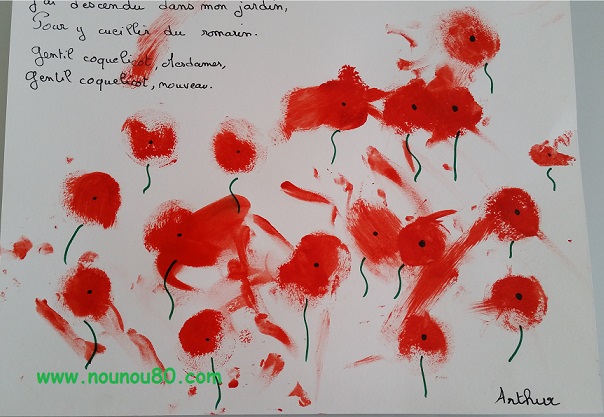 J'ai descendu dans mon jardin,
Pour y cueillir du romarin.
Gentil coquelicot, Mesdames,
Gentil coquelicot, nouveau.
www.nounou80.com
Arthur